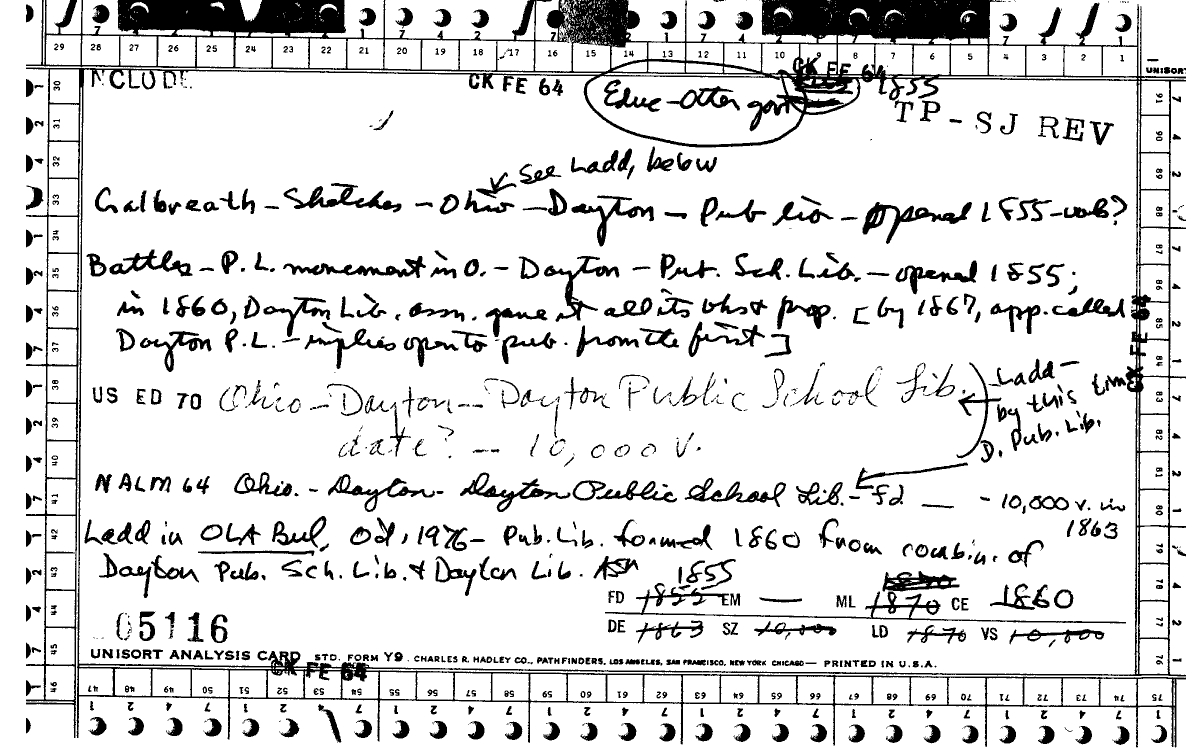 29 28 27 26 25 24 23 22 21 20 19 18 17 16 15 14 13 12 11 10 9 8 7 6 5 4 3 2 1
UNISORT
INCLUDE
CK FE 64
CK FE 64
Educ-Other govt
1855
TP-SJ REV
See Ladd, below
Galbreath - Sketches - Ohio - Dayton - Pub lib - opened 1855 -
Battles - P.L. movement in O. - Dayton - Pub. Sch. Lib. - opened 1855;
in 1860, Dayton Lib. assn. gave it all its bks & prop. [by 1867, app. called
Dayton P.L. - implies open to pub. from the first]
CK FE 64
US ED 70 Ohio - Dayton - Dayton Public School Lib.
date? -- 10,000 v.
Ladd -
by this time
D. Pub. Lib.
NALM 64 Ohio. - Dayton - Dayton Public School Lib. - fd — - 10,000 v. in
1863
Ladd in OLA Bul, Oct, 1976 - Pub. Lib. formed 1860 from combin. of
Dayton Pub. Sch. Lib. & Dayton Lib. Asn
1855
FD 1855 EM — ML 1870 CE 1860
DE 1863 SZ 10,000 LD 1870 VS 10,000
05116
UNISORT ANALYSIS CARD STD. FORM Y9 . CHARLES R. HADLEY CO., PATHFINDERS, LOS ANGELES, SAN FRANCISCO, NEW YORK CHICAGO — PRINTED IN U.S.A.
CK FE 64
47 48 49 50 51 52 53 54 55 56 57 58 59 60 61 62 63 64 65 66 67 68 69 70 71 72 73 74 75